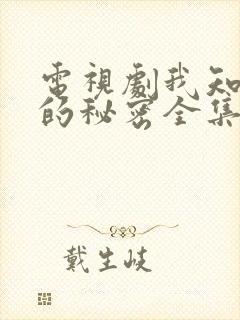 電視劇我知
的秘密全集
戴生岐